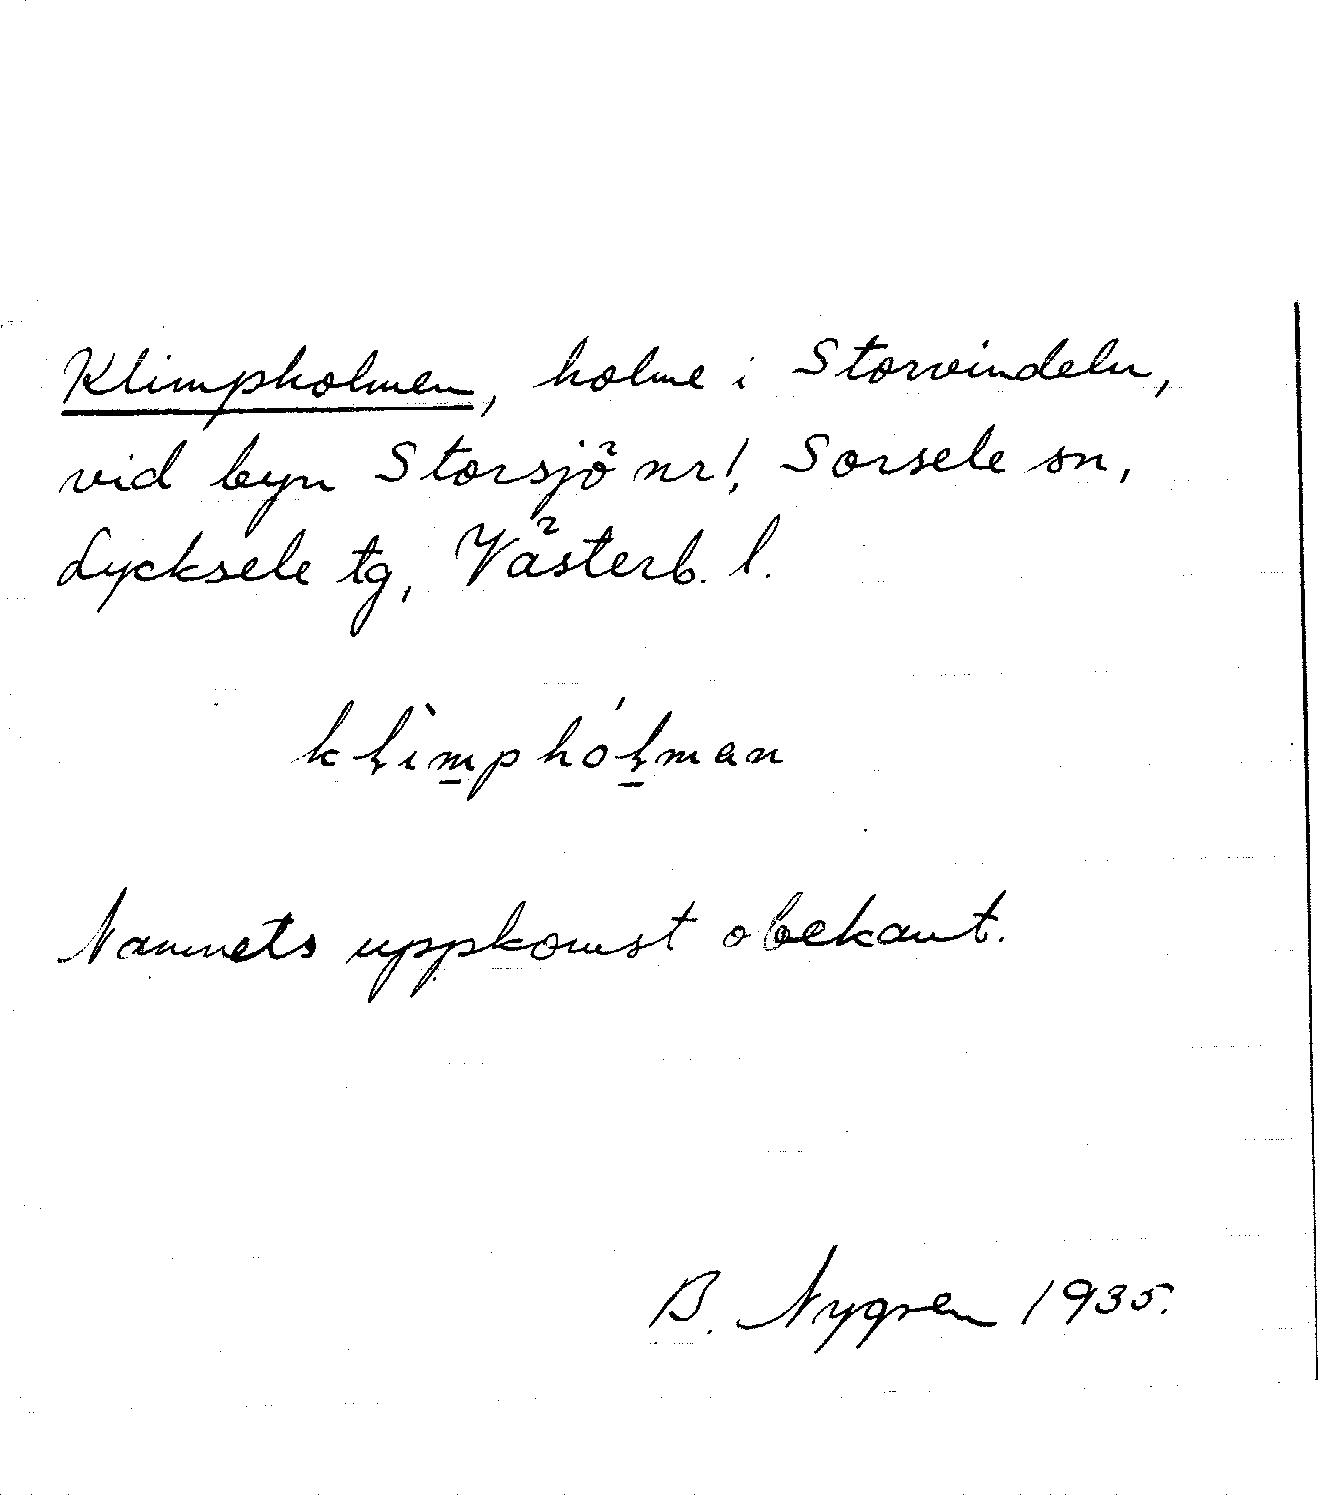 Klimpholmen, holme i Storvindeln,
vid byn Storsjö nr 1, Sorsele sn,
Lycksele tg, Västerb. l.
kḷìmphóḷman
Namnets uppkomst obekant.
B. Nygren 1935.